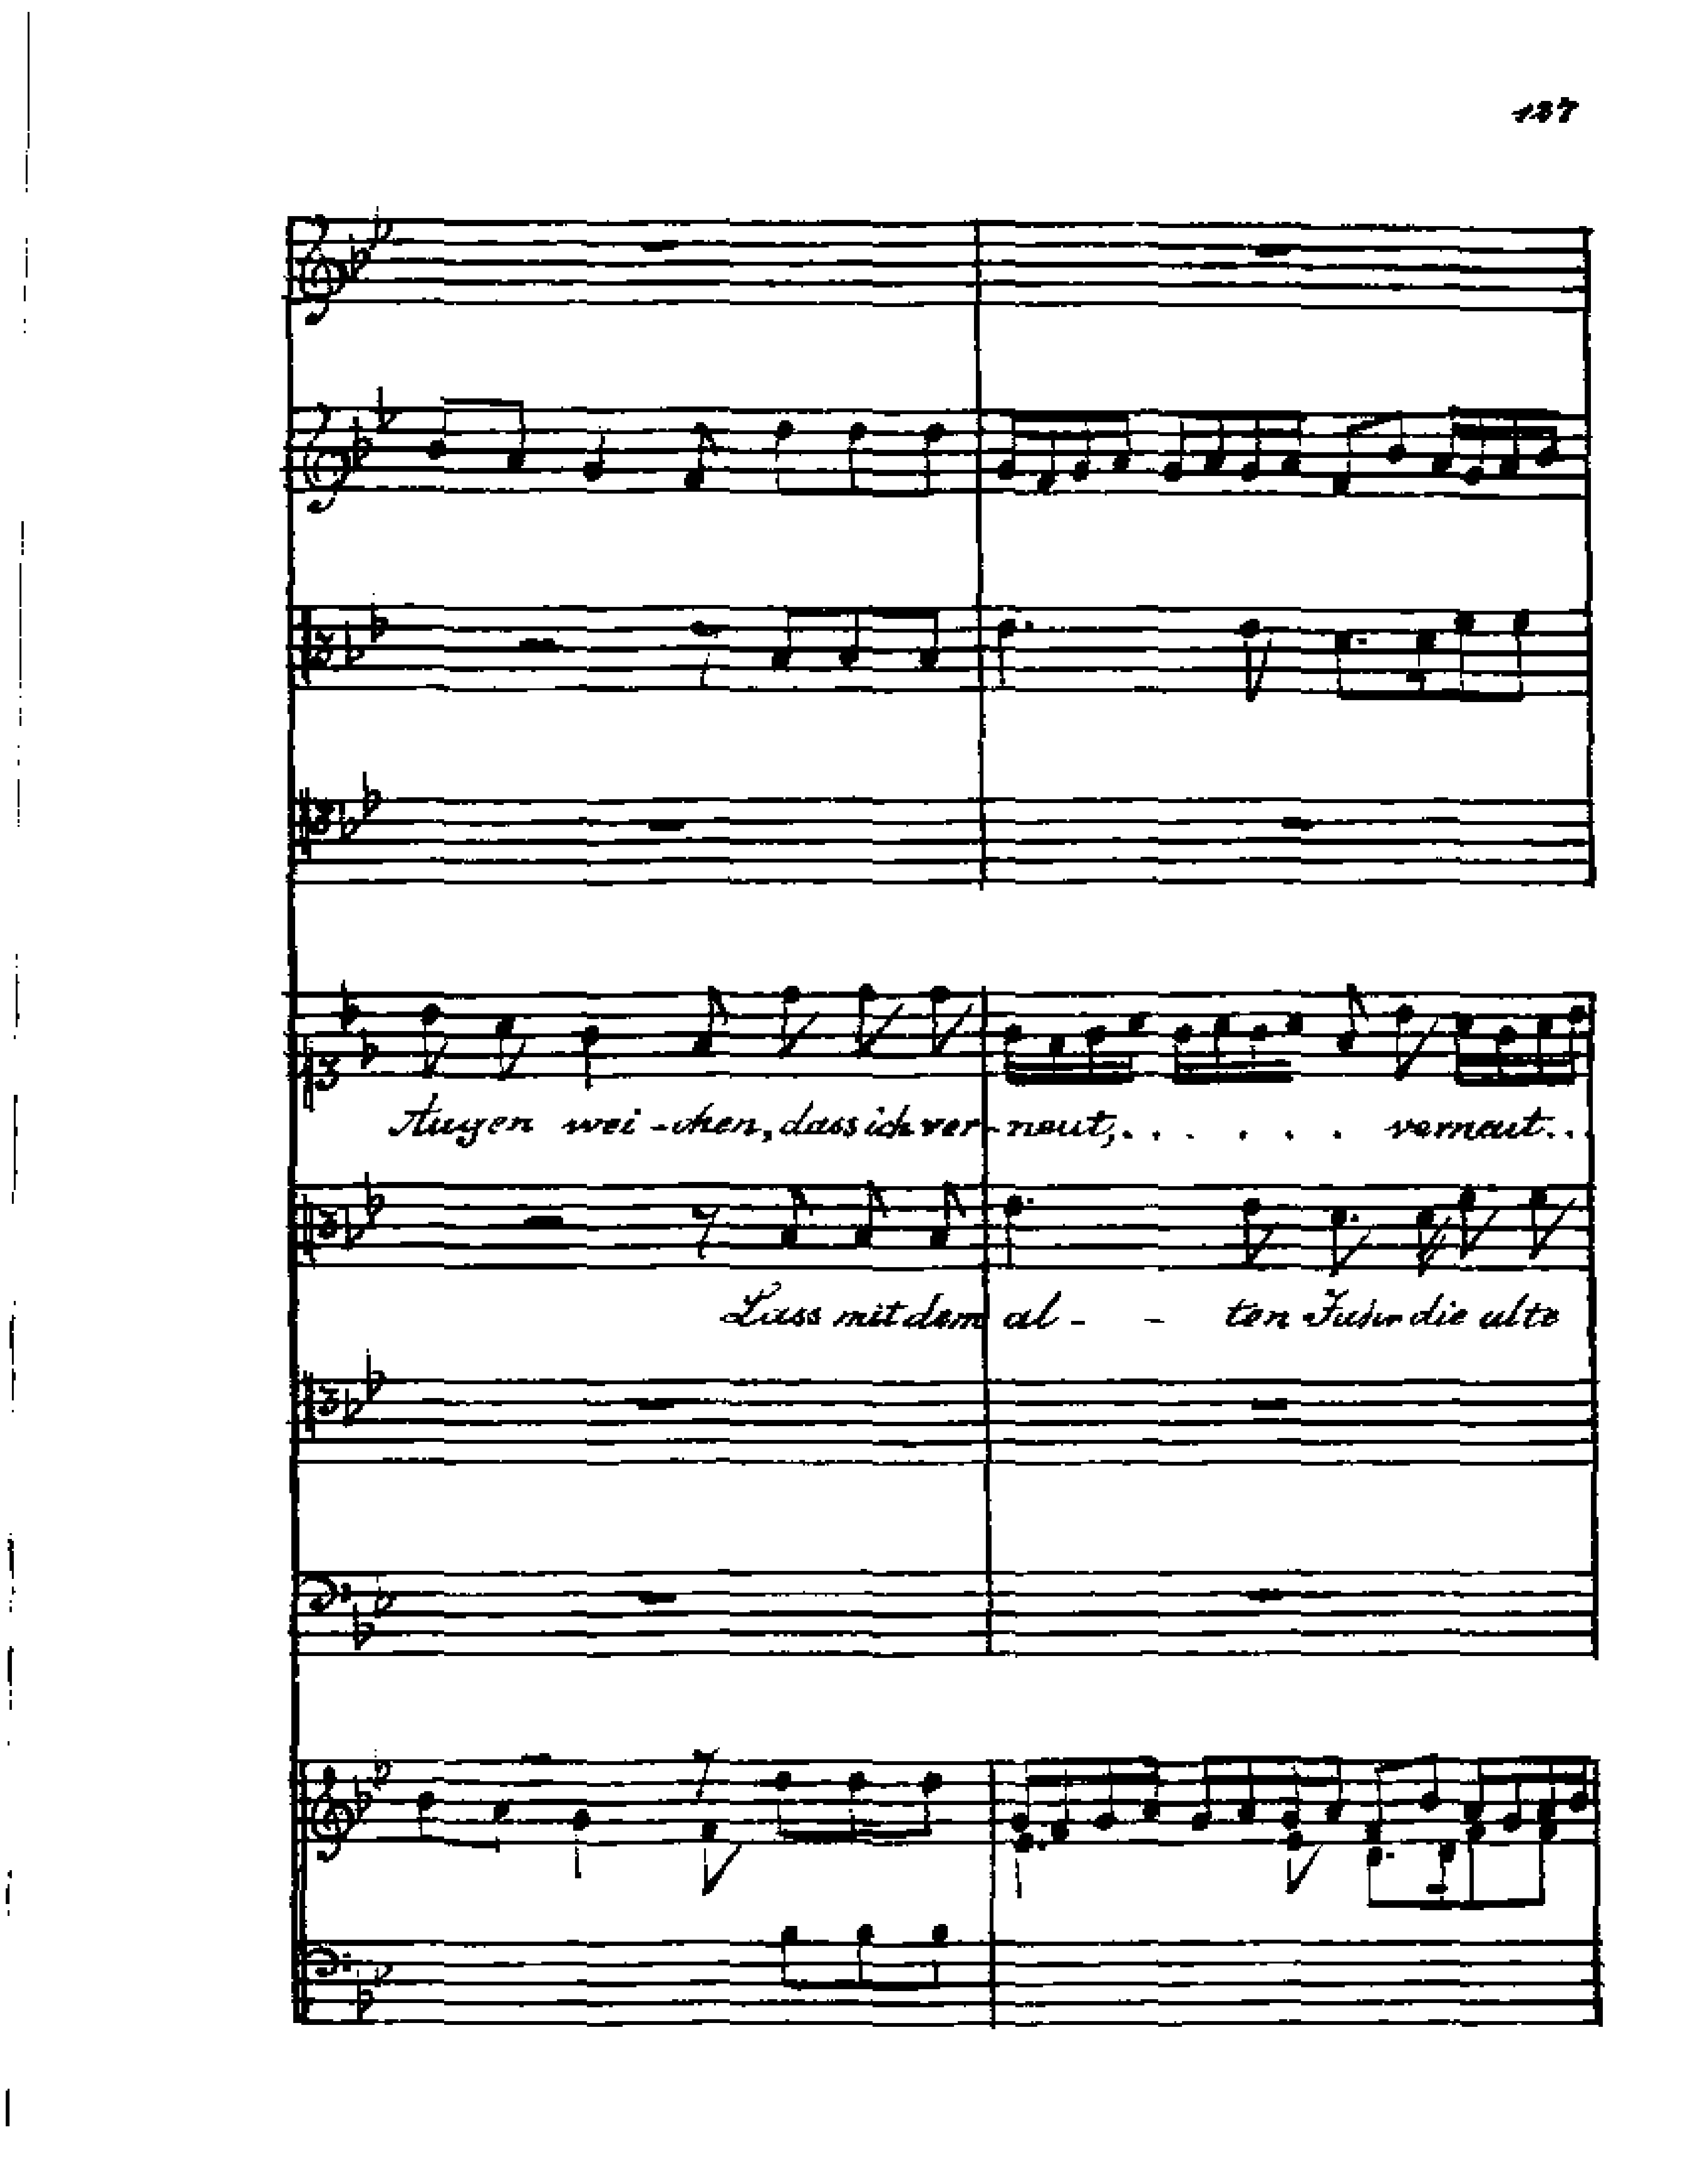 127
Augen wei-chen, dass ich ver-neut,. . . . . . verneut. . .
Lass mit dem al - - ten Jahr die alte